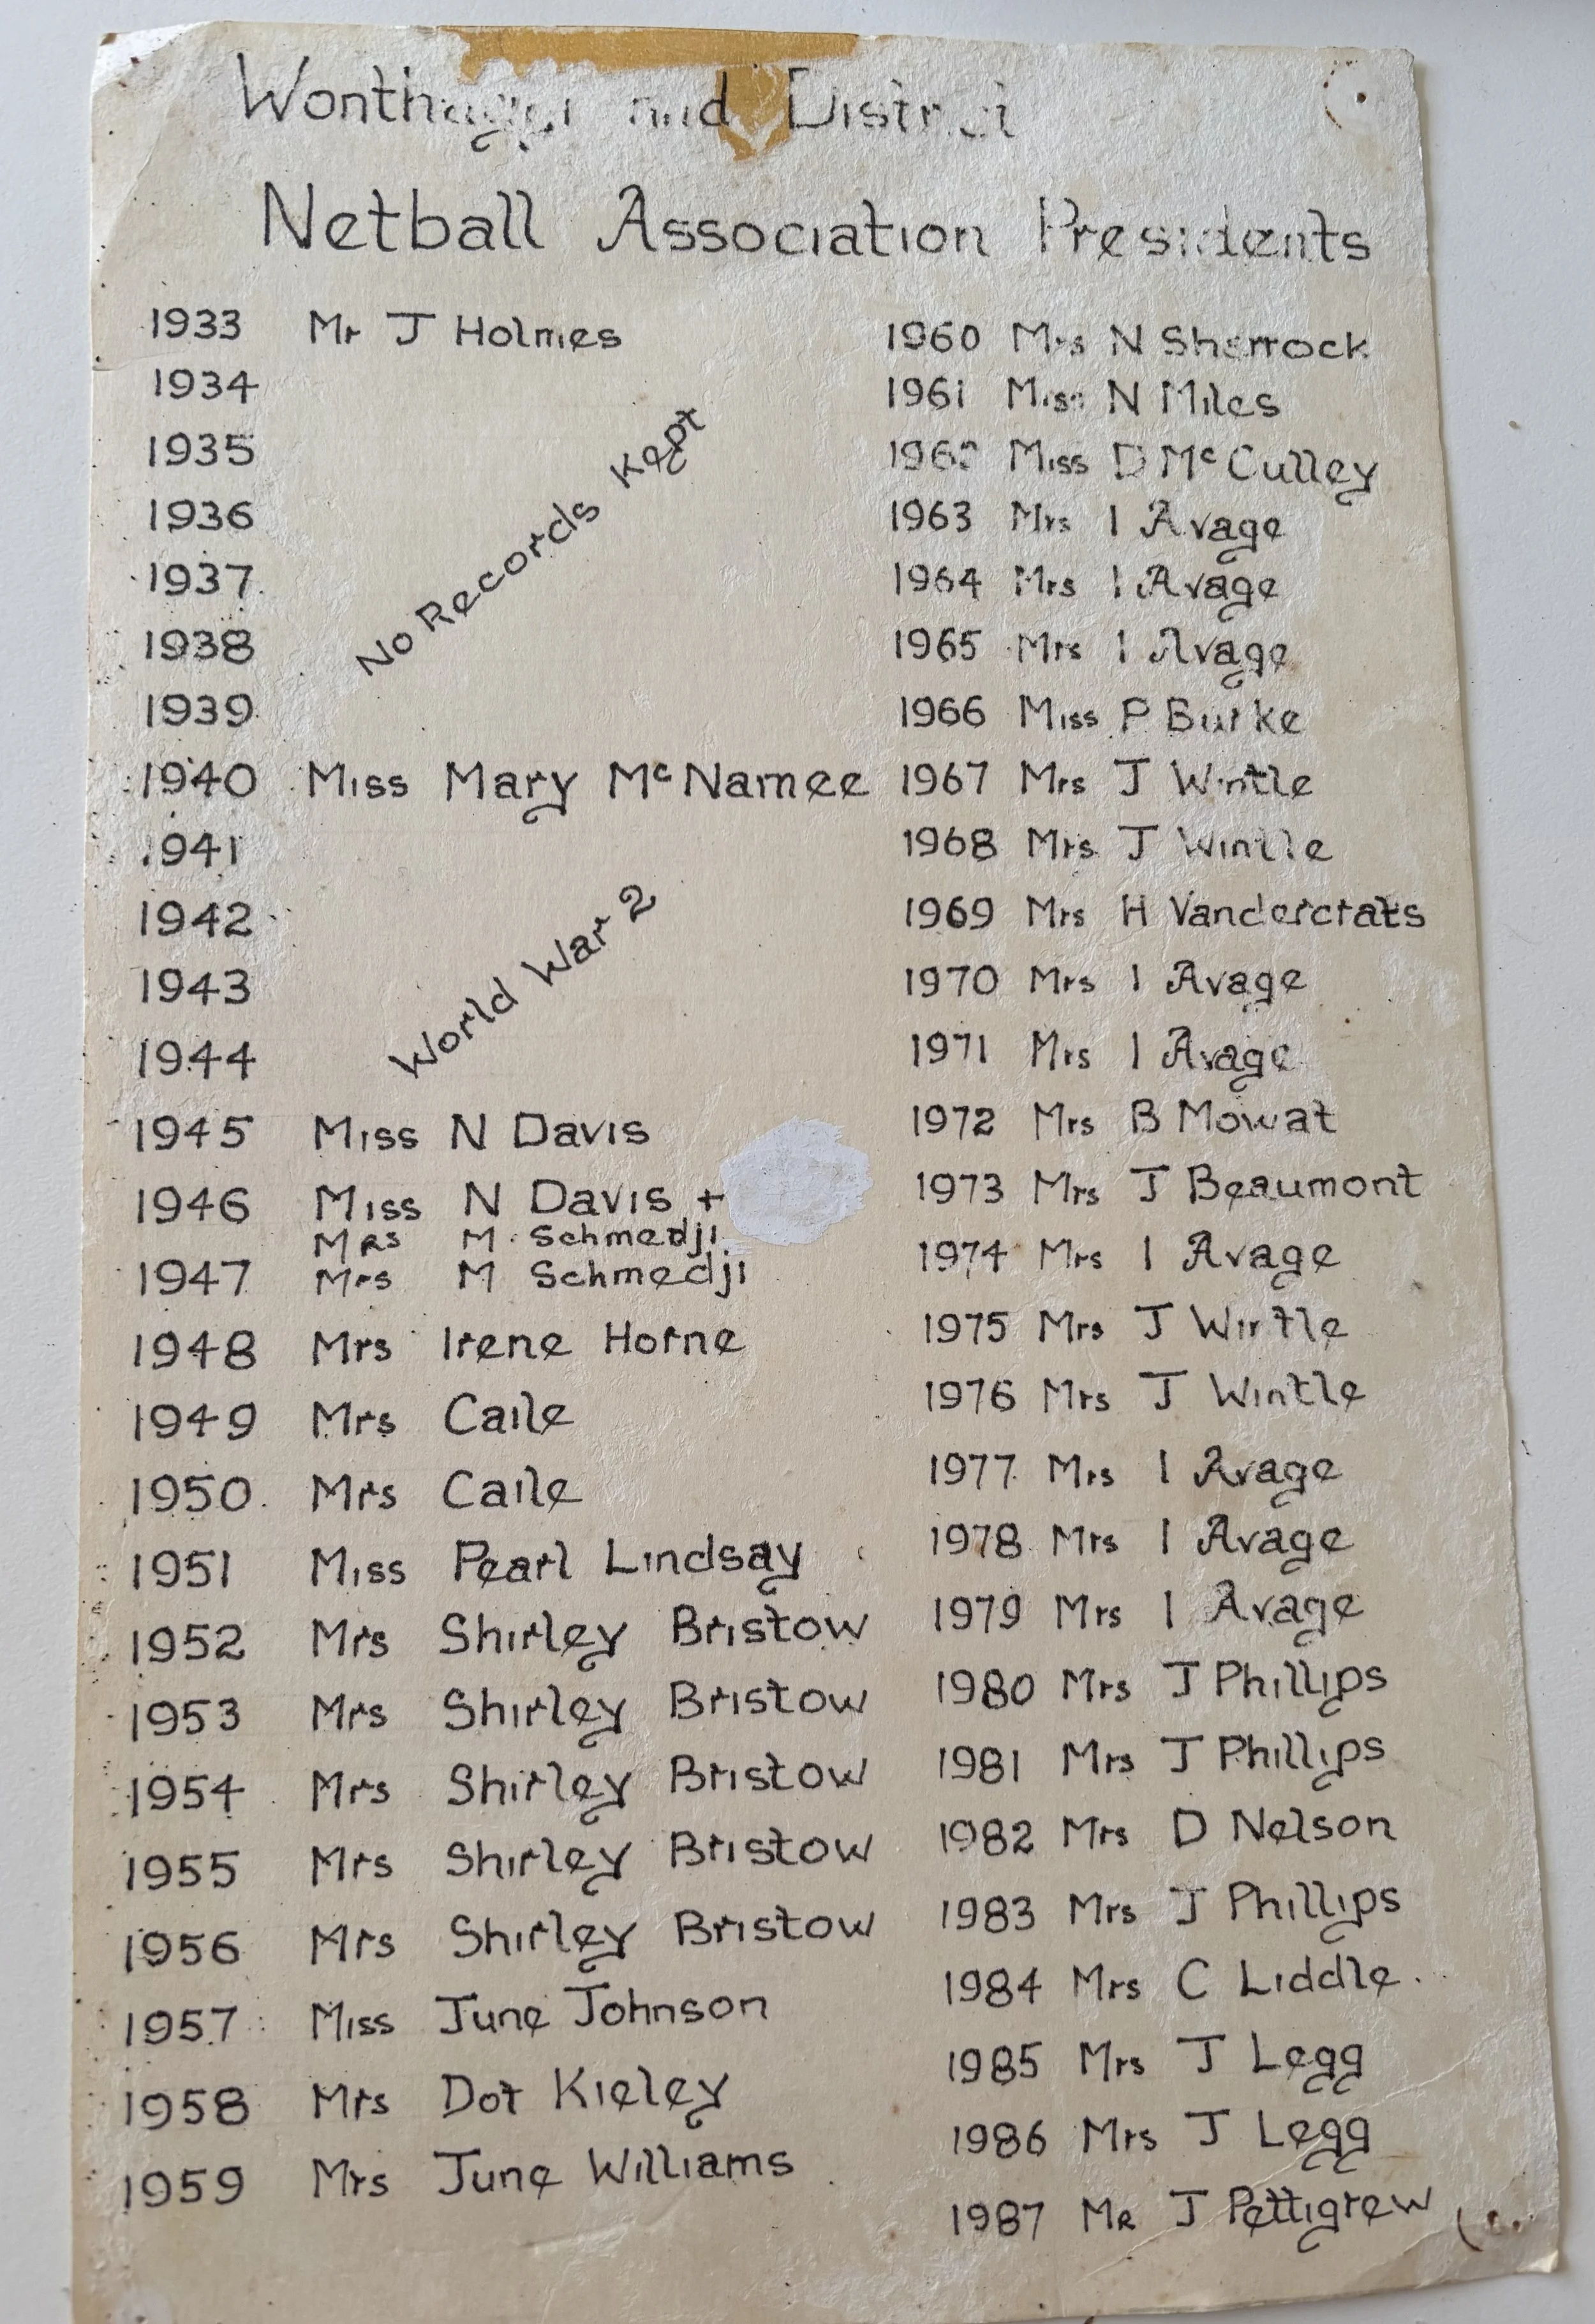 Wonthaggi and District
Netball Association Presidents
1933 Mr J Holmes
1934
1935
1936
1937
1938
1939
No Records Kept
1940 Miss Mary McNamee
1941
1942
1943
1944
World War 2
1945 Miss N Davis
1946 Miss N Davis +
Mrs M Schmedji
1947 Mrs M Schmedji
1948 Mrs Irene Horne
1949 Mrs Caile
1950 Mrs Caile
1951 Miss Pearl Lindsay
1952 Mrs Shirley Bristow
1953 Mrs Shirley Bristow
1954 Mrs Shirley Bristow
1955 Mrs Shirley Bristow
1956 Mrs Shirley Bristow
1957 Miss June Johnson
1958 Mrs Dot Kieley
1959 Mrs June Williams
1960 Mrs N Sherrock
1961 Miss N Miles
1962 Miss D McCulley
1963 Mrs I Avage
1964 Mrs I Avage
1965 Mrs I Avage
1966 Miss P Burke
1967 Mrs J Wintle
1968 Mrs J Wintle
1969 Mrs H
1970 Mrs I Avage
1971 Mrs I Avage
1972 Mrs B Mowat
1973 Mrs J Beaumont
1974 Mrs I Avage
1975 Mrs J Wintle
1976 Mrs J Wintle
1977 Mrs I Avage
1978 Mrs I Avage
1979 Mrs I Avage
1980 Mrs J Phillips
1981 Mrs J Phillips
1982 Mrs D Nelson
1983 Mrs J Phillips
1984 Mrs C Liddle
1985 Mrs J Legg
1986 Mrs J Legg
1987 Mr J Pettigrew